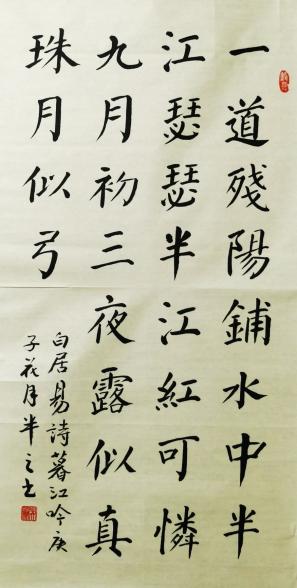 一道残陽鋪水中半
江瑟瑟半江紅可憐
九月初三夜露似真
珠月似弓
白居易詩暮江吟庚
子花月半之書